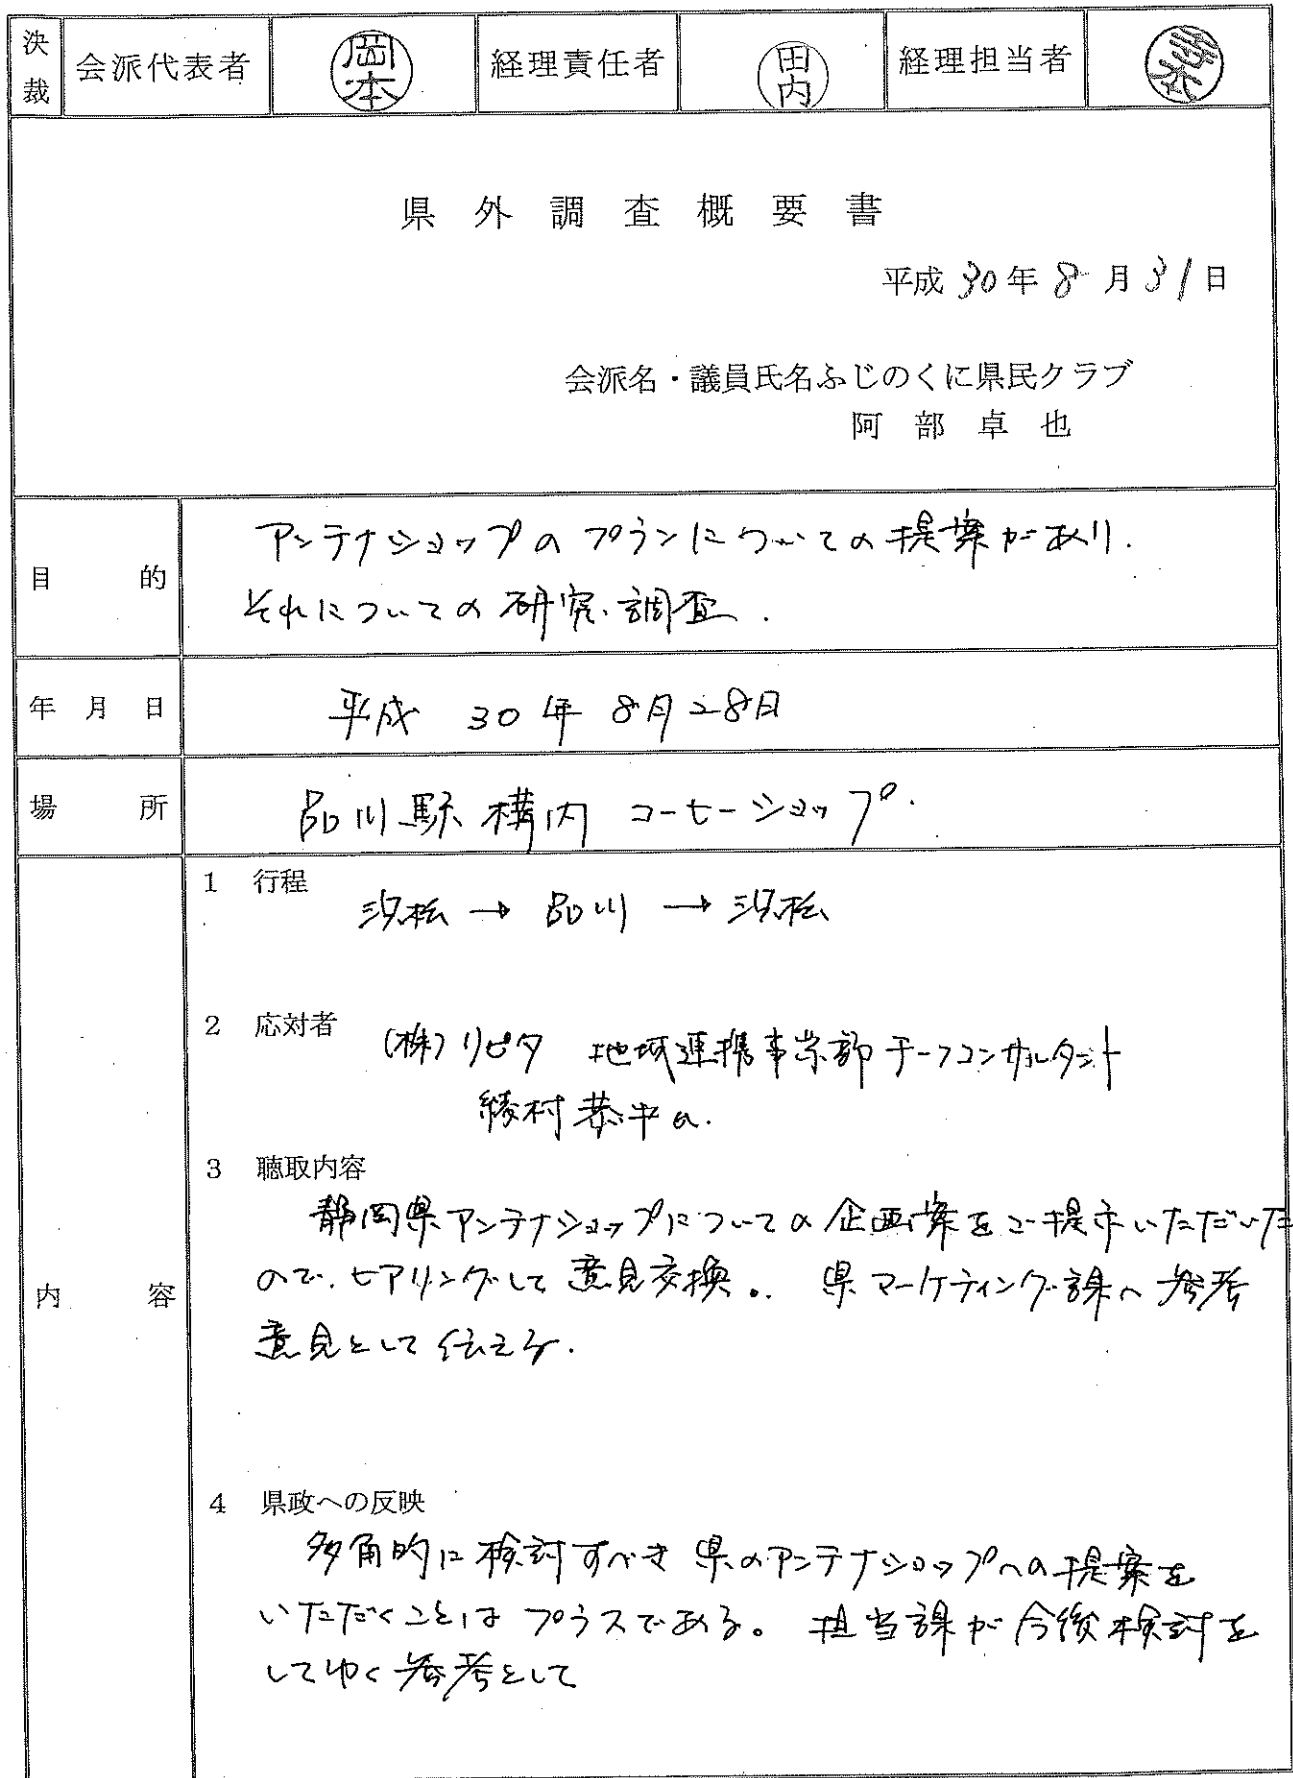 決裁 会派代表者 岡本 経理責任者 田内 経理担当者
県外調査概要書
平成30年8月31日
会派名・議員氏名ふじのくに県民クラブ
阿部卓也
目的
アンテナショップのプランについての提案があり.
それについての研究・調査.
年月日
平成 30年 8月28日
場所
品川駅構内 コーヒーショップ.
内容
1 行程
浜松 → 品川 → 浜松
2 応対者 (株)リビタ 地域連携事業部チーフコンサルタント
綾村恭平
3 聴取内容
静岡県アンテナショップについての企画案をご提示いただいた
ので、ヒアリングして意見交換. 県マーケティング課へ参考
意見として伝える.
4 県政への反映
多角的に検討すべき県のアンテナショップへの提案を
いただくことはプラスである。担当課が今後検討を
してゆく参考として